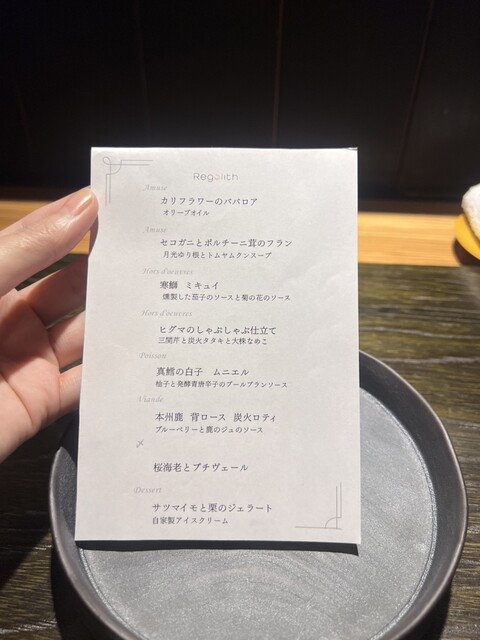 Regolith
Amuse
カリフラワーのババロア
オリーブオイル
Amuse
セコガニとポルチーニ茸のフラン
月光ゆり根とトムヤムクンスープ
Hors d'oeuvres
寒鰤 ミキュイ
燻製した茄子のソースと菊の花のソース
Hors d'oeuvres
ヒグマのしゃぶしゃぶ仕立て
三関芹と炭火タタキと大株なめこ
Poisson
真鱈の白子 ムニエル
柚子と発酵青唐辛子のブールブランソース
Viande
本州鹿 背ロース 炭火ロティ
ブルーベリーと鹿のジュのソース
〆
桜海老とプチヴェール
Dessert
サツマイモと栗のジェラート
自家製アイスクリーム